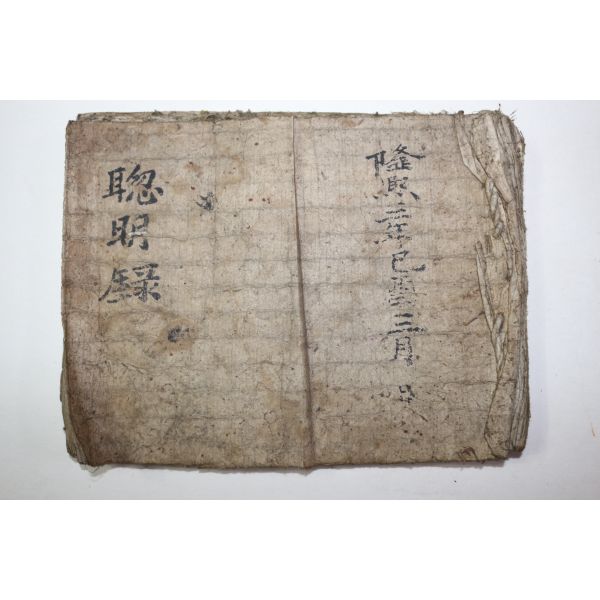 隆熙三年己酉三月 日
聰明錄